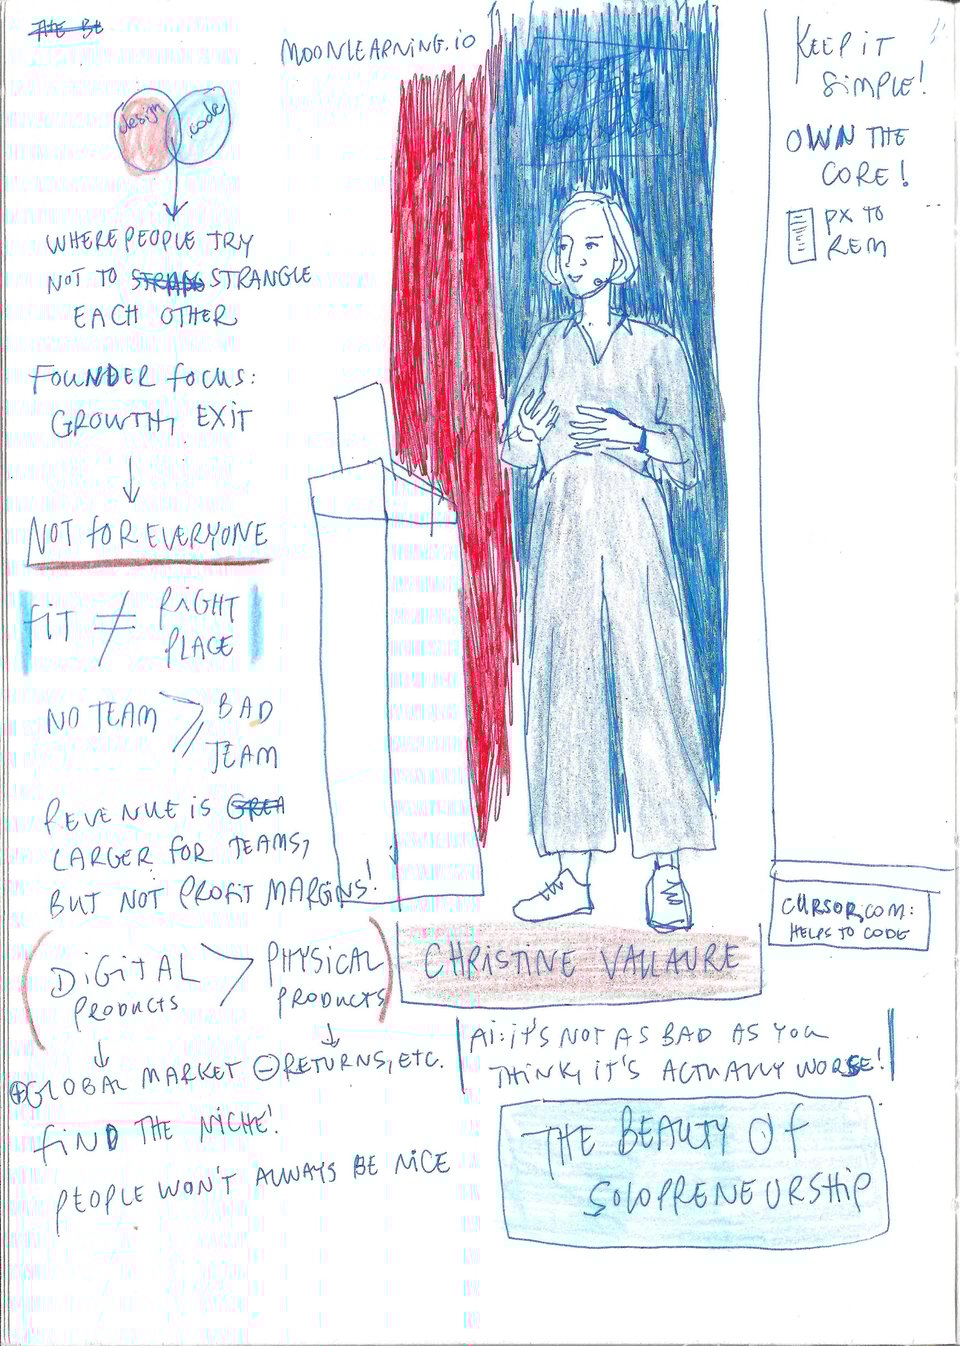 THE BE
MOONLEARNING.IO
design
code
WHERE PEOPLE TRY
NOT TO STRANGLE
EACH OTHER
FOUNDER FOCUS:
GROWTH, EXIT
NOT FOR EVERYONE
FIT ≠ RIGHT
PLACE
NO TEAM > BAD
TEAM
REVENUE IS GREA
LARGER FOR TEAMS,
BUT NOT PROFIT MARGINS!
(DIGITAL > PHYSICAL
PRODUCTS PRODUCTS)
+ GLOBAL MARKET - RETURNS, ETC.
FIND THE NICHE!
PEOPLE WON'T ALWAYS BE NICE
CHRISTINE VALLAURE
AI: IT'S NOT AS BAD AS YOU
THINK, IT'S ACTUALLY WORSE!
THE BEAUTY OF
SOLOPRENEURSHIP
KEEP IT
SIMPLE!
OWN THE
CORE!
PX TO
REM
CURSOR.COM:
HELPS TO CODE